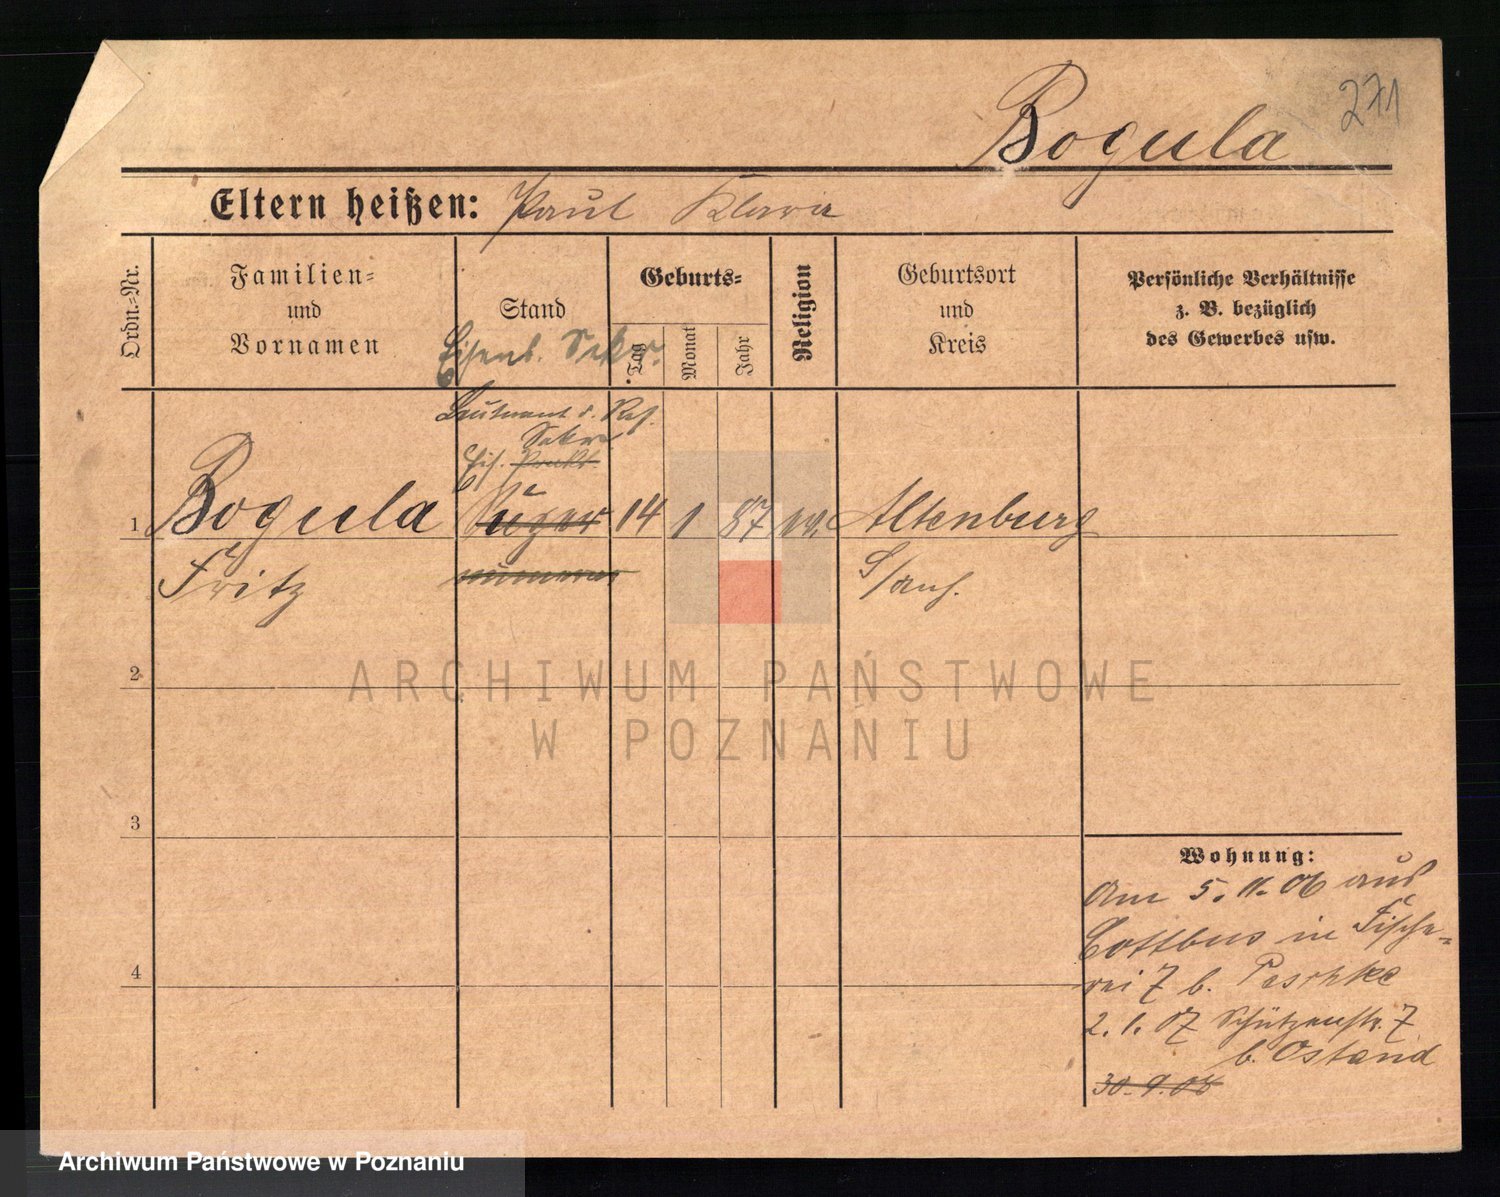 271
Bogula
Eltern heißen: Paul Klara
Ordn.-Nr.
Familien-
und
Vornamen
Stand
Geburts-
Tag
Monat
Jahr
Religion
Geburtsort
und
Kreis
Persönliche Verhältnisse
z. B. bezüglich
des Gewerbes usw.
Eisenb. Sekr.
Leutnant d. Res.
Sekr.
Eis. Prakt.
1 Bogula 14 1 87 ev. Altenburg
Fritz
S/anh.
2
3
4
Wohnung:
Am 5. 11. 06 aus
Cottbus in Fische-
rei 7 b. Peschke
2. 1. 07 Schützenstr. 7
b. Ostand
30. 9. 08
ARCHIWUM PAŃSTWOWE
W POZNANIU
Archiwum Państwowe w Poznaniu